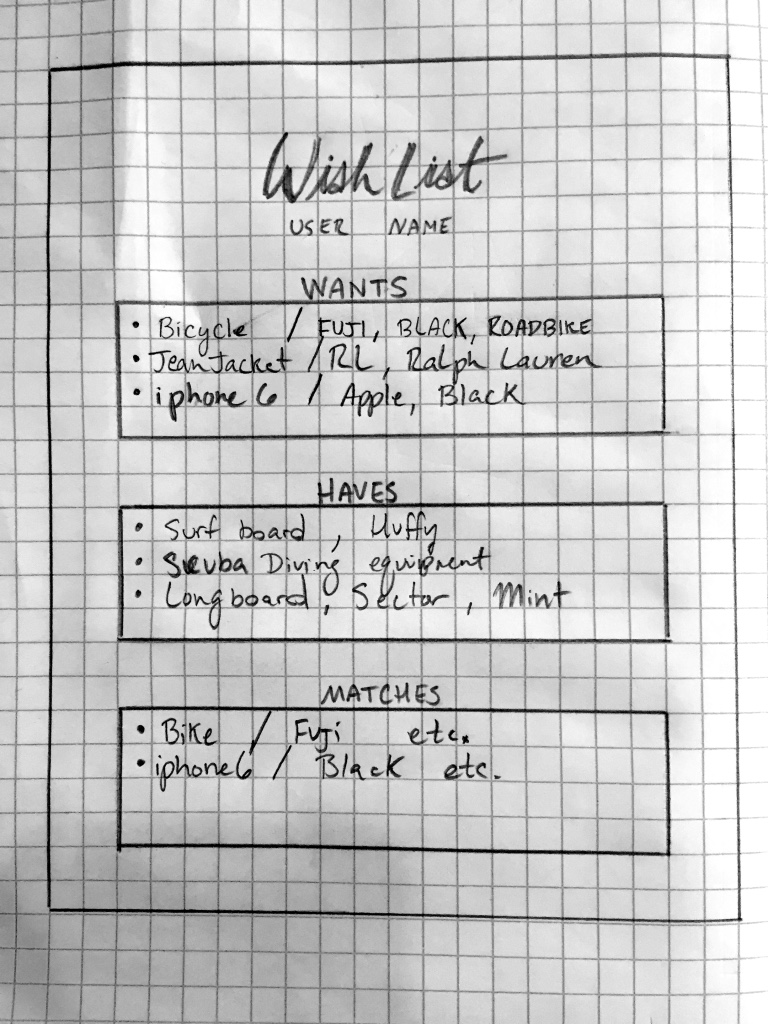 Wish List
USER NAME
WANTS
• Bicycle / FUJI, BLACK, ROADBIKE
• Jean Jacket / RL, Ralph Lauren
• iphone 6 / Apple, Black
HAVES
• Surf board, Huffy
• Scuba Diving equipment
• Longboard, Sector, Mint
MATCHES
• Bike / Fuji etc.
• iphone 6 / Black etc.